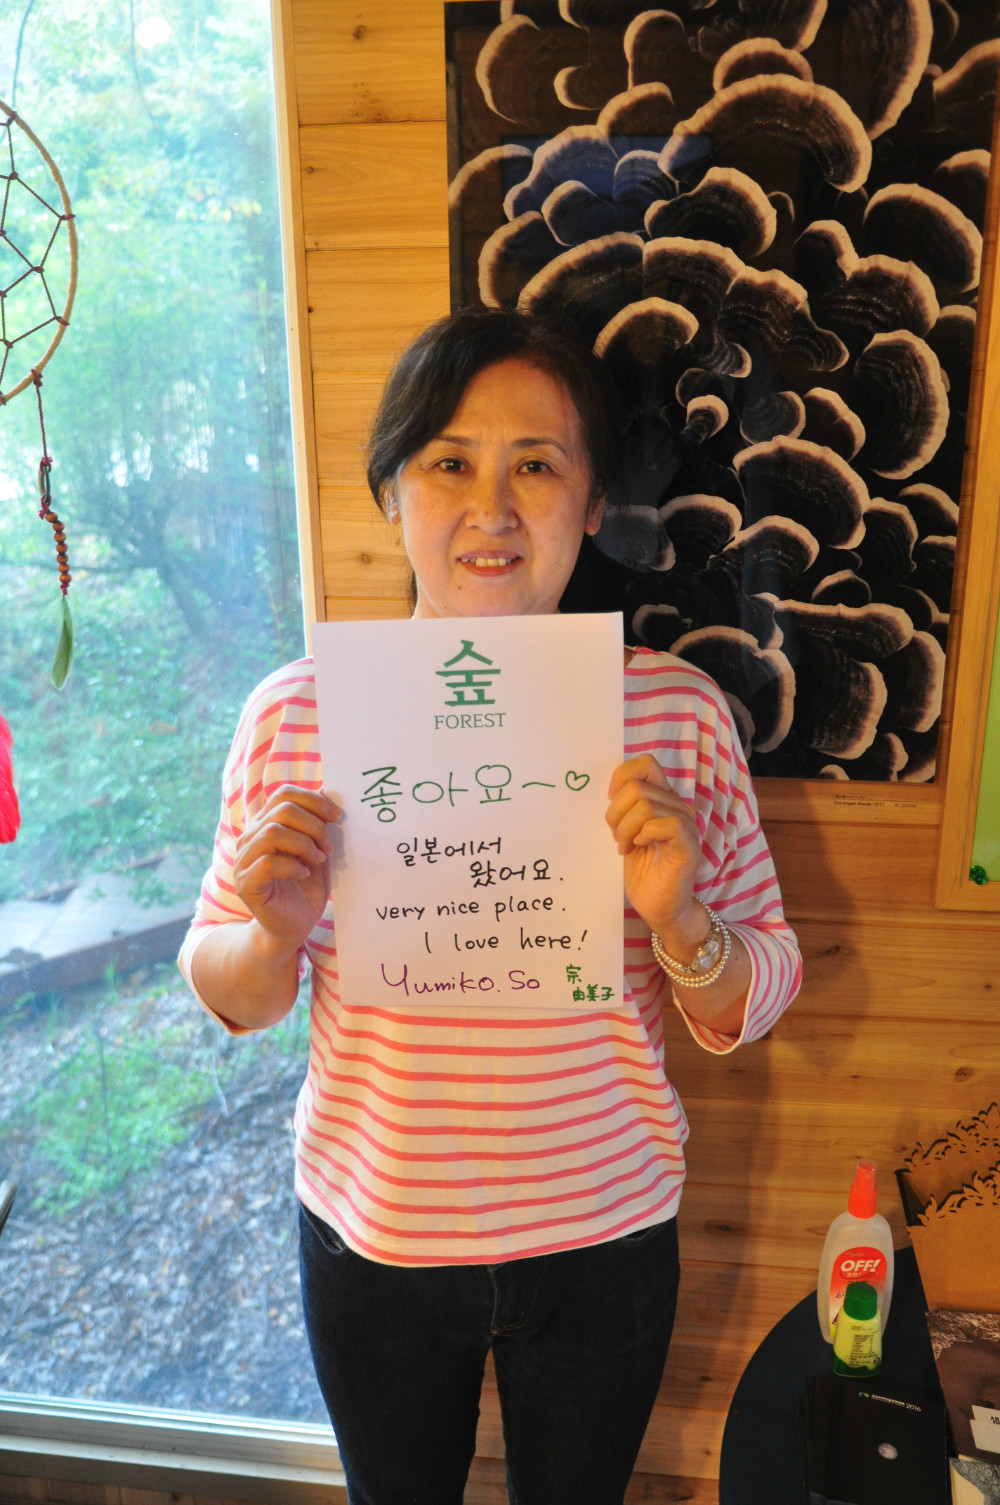 숲
FOREST
좋아요~♡
일본에서
왔어요.
very nice place.
I love here!
Yumiko. So
宗
由美子
OFF!
2016